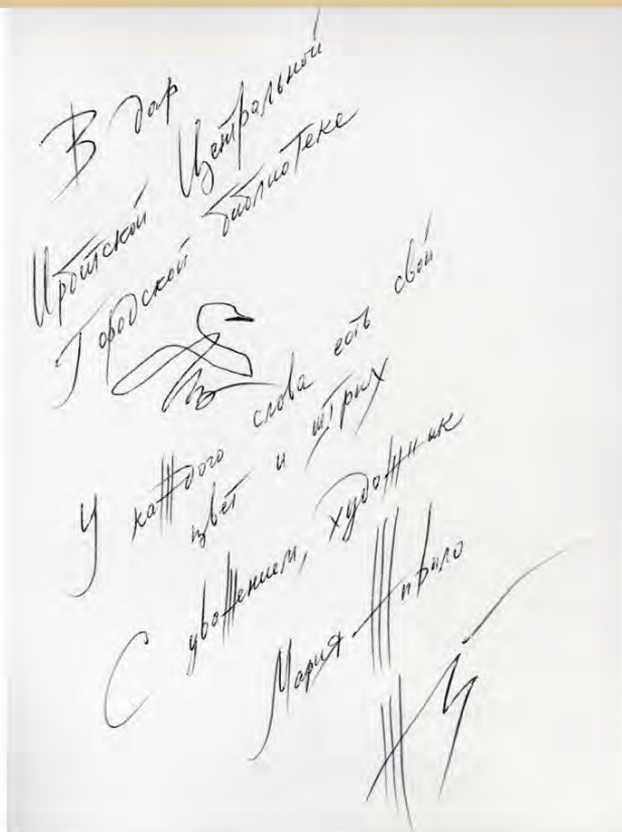 В дар
Ирбитской Центральной
Городской библиотеке
У каждого слова есть свой
цвет и штрих
С уважением, художник
Мария